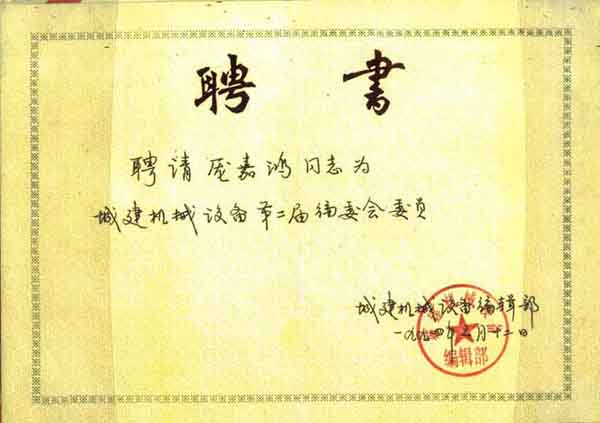 聘书
聘请嘉鸿同志为
城建机械设备第二届编委会委员
城建机械设备编辑部
一九九四年月十二日
编辑部